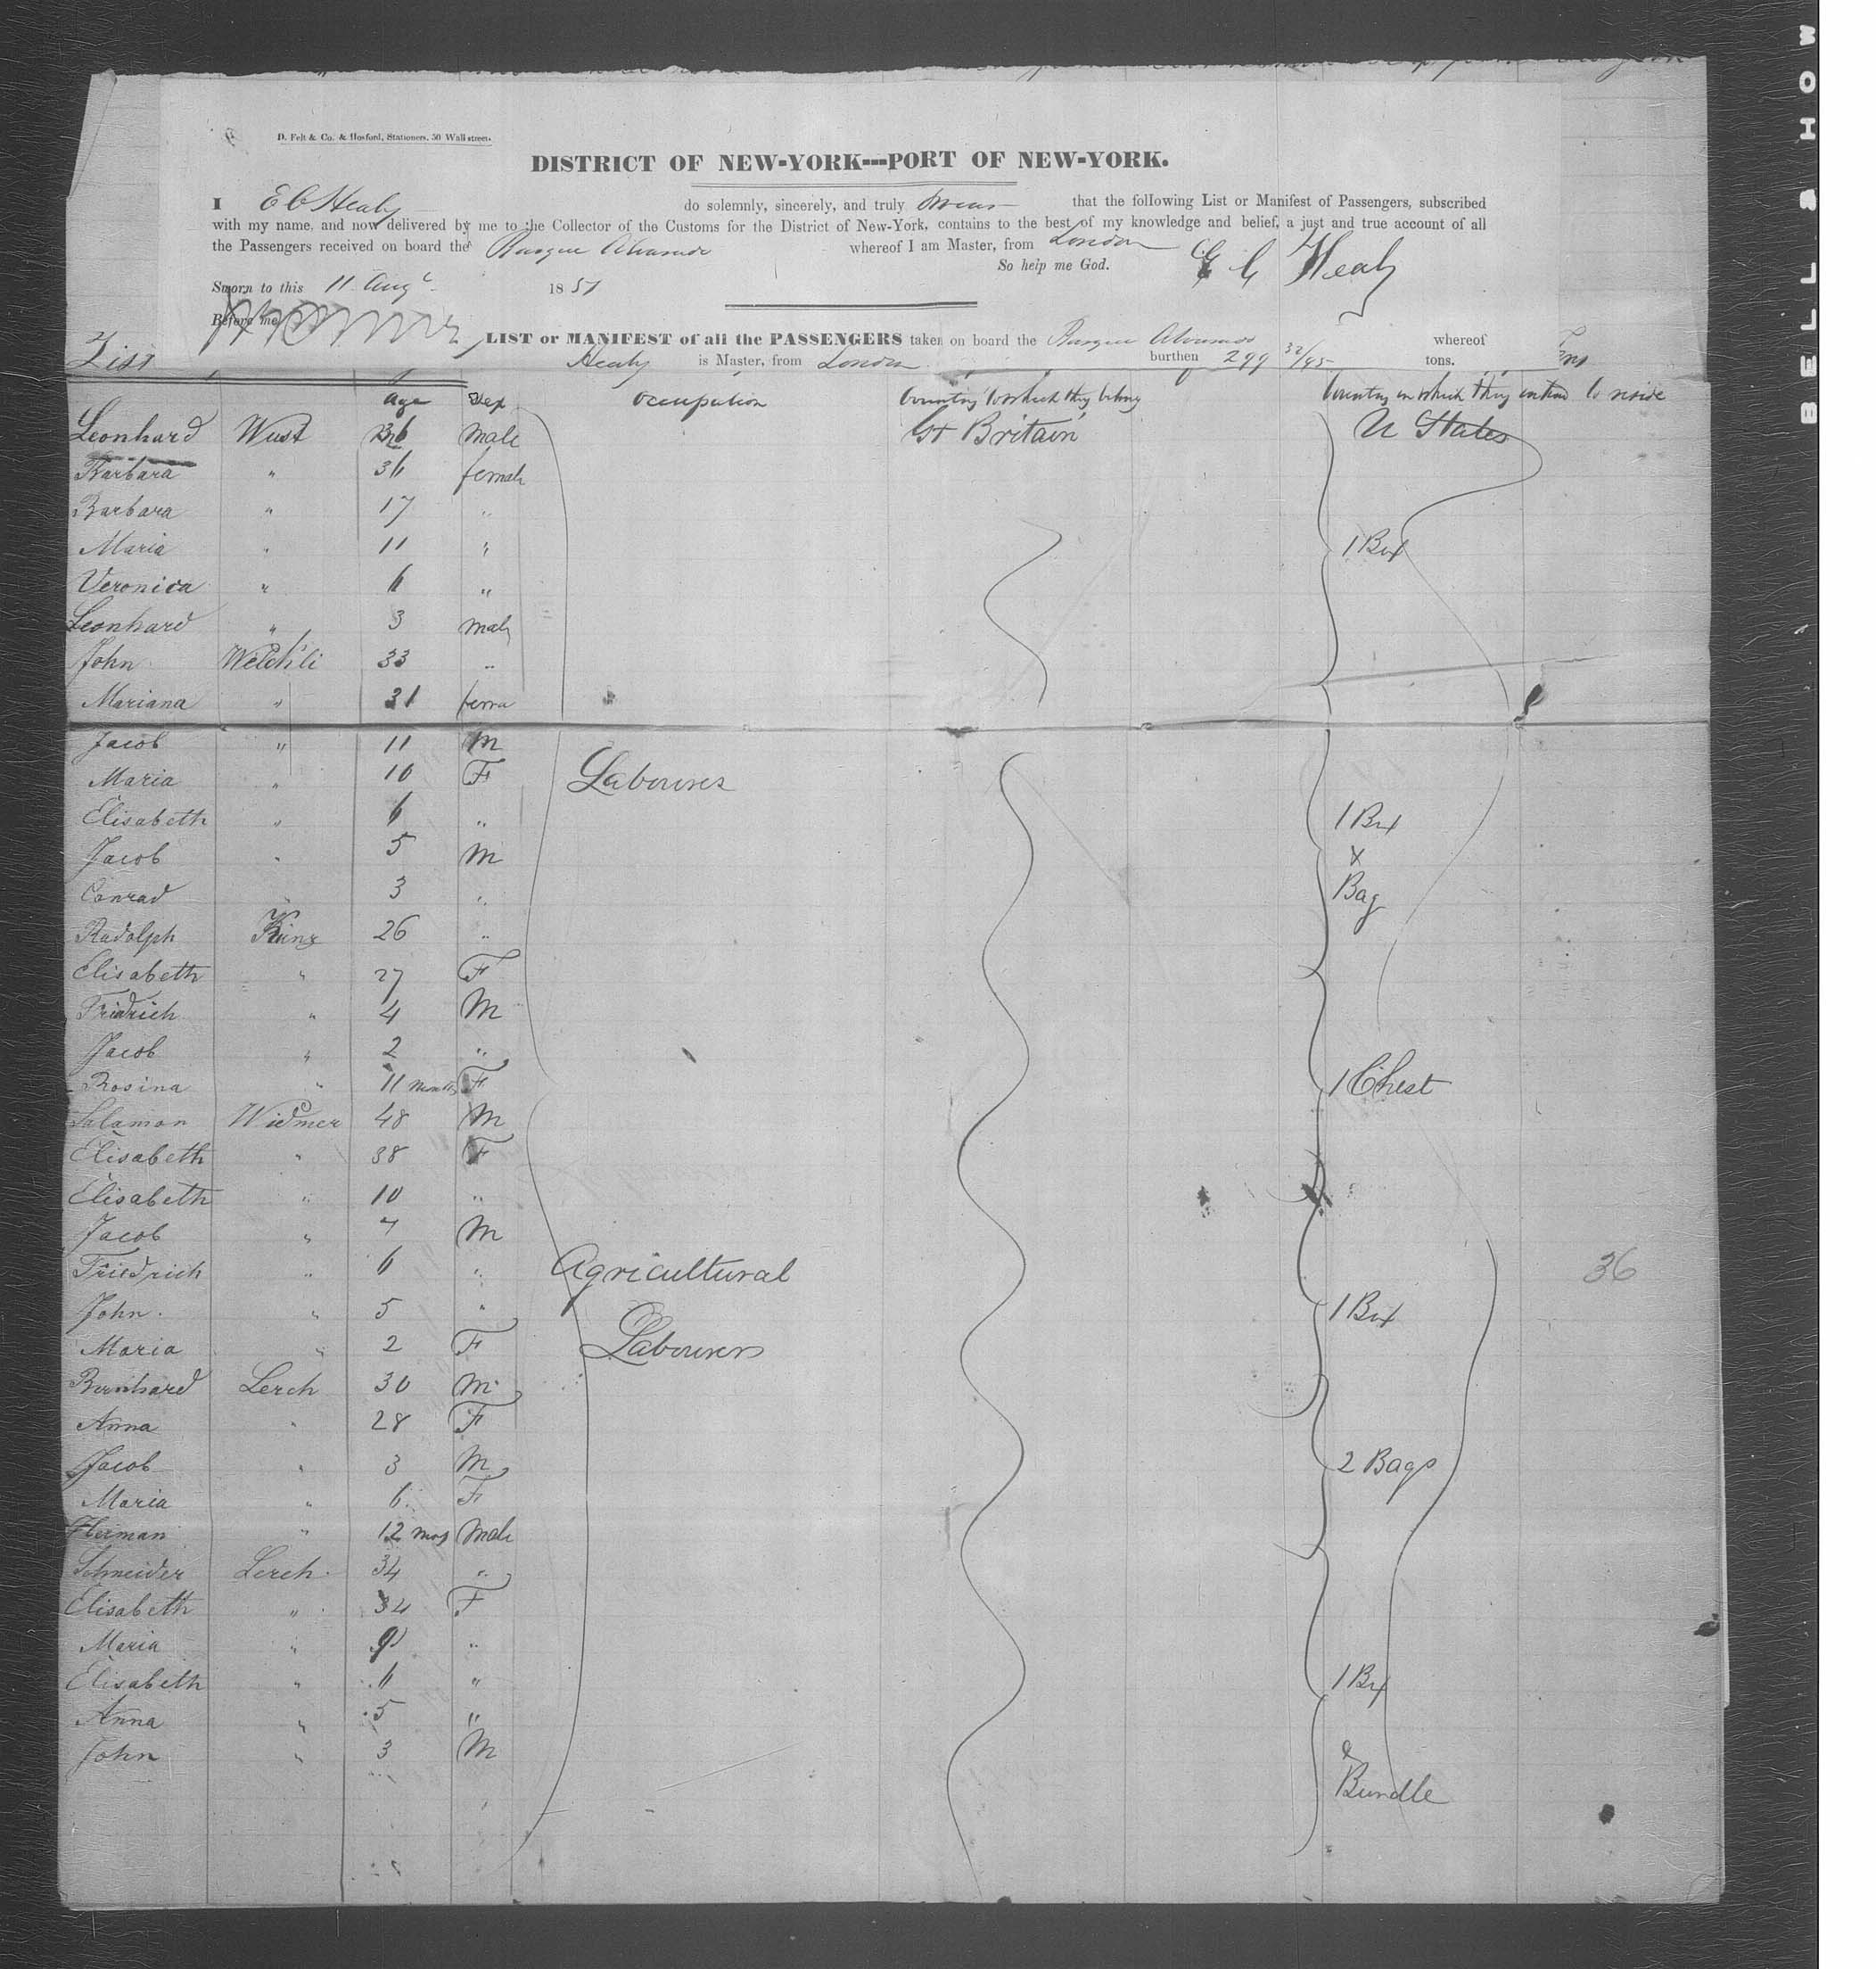 D. Felt & Co. & Hosford, Stationers, 50 Wall street.
DISTRICT OF NEW-YORK---PORT OF NEW-YORK.
I E C Healy do solemnly, sincerely, and truly swear that the following List or Manifest of Passengers, subscribed
with my name, and now delivered by me to the Collector of the Customs for the District of New-York, contains to the best of my knowledge and belief, a just and true account of all
the Passengers received on board the Barque Alvarado whereof I am Master, from London
So help me God. Healy
Sworn to this 11 Augt 1851
Before me
LIST or MANIFEST of all the PASSENGERS taken on board the Barque Alvarado whereof
List Healy is Master, from London burthen 299 32/95 tons.
Age Sex Occupation Country to which they belong Country in which they intend to reside
Leonhard Wust 36 Male Gt Britain U States
Barbara " 36 female
Barbara " 17 "
Maria " 11 " 1 Box
Veronica " 6 "
Leonhard " 3 male
John Welchli 33 "
Mariana " 31 fema
Jacob " 11 M
Maria " 10 F Labourers
Elisabeth " 6 " 1 Box
Jacob " 5 M &
Conrad " 3 " Bag
Rudolph Kunz 26 "
Elisabeth " 27 F
Fridrich " 4 M
Jacob " 2 "
Rosina " 11 months F 1 Chest
Salamon Widmer 48 M
Elisabeth " 38 F
Elisabeth " 10 "
Jacob " 7 M
Friedrich " 6 " Agricultural 36
John " 5 " 1 Box
Maria " 2 F Labourers
Bernhard Lerch 30 M
Anna " 28 F
Jacob " 3 M 2 Bags
Maria " 6 F
Herman " 12 mos Male
Schneider Lerch 34 "
Elisabeth " 34 F
Maria " 9 "
Elisabeth " 6 " 1 Box
Anna " 5 "
John " 3 M &
Bundle
BELL & HOW